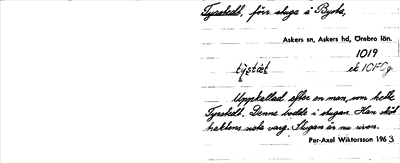 Tyrstedt, förr stuga å Bysta,
Askers sn, Askers hd, Örebro län.
1019
ek 10FCg
Uppkallad efter en man, som hette
Tyrstedt. Denne bodde i stugan. Han sköt
traktens sista varg. Stugan är nu riven.
Per-Axel Wiktorsson 1963